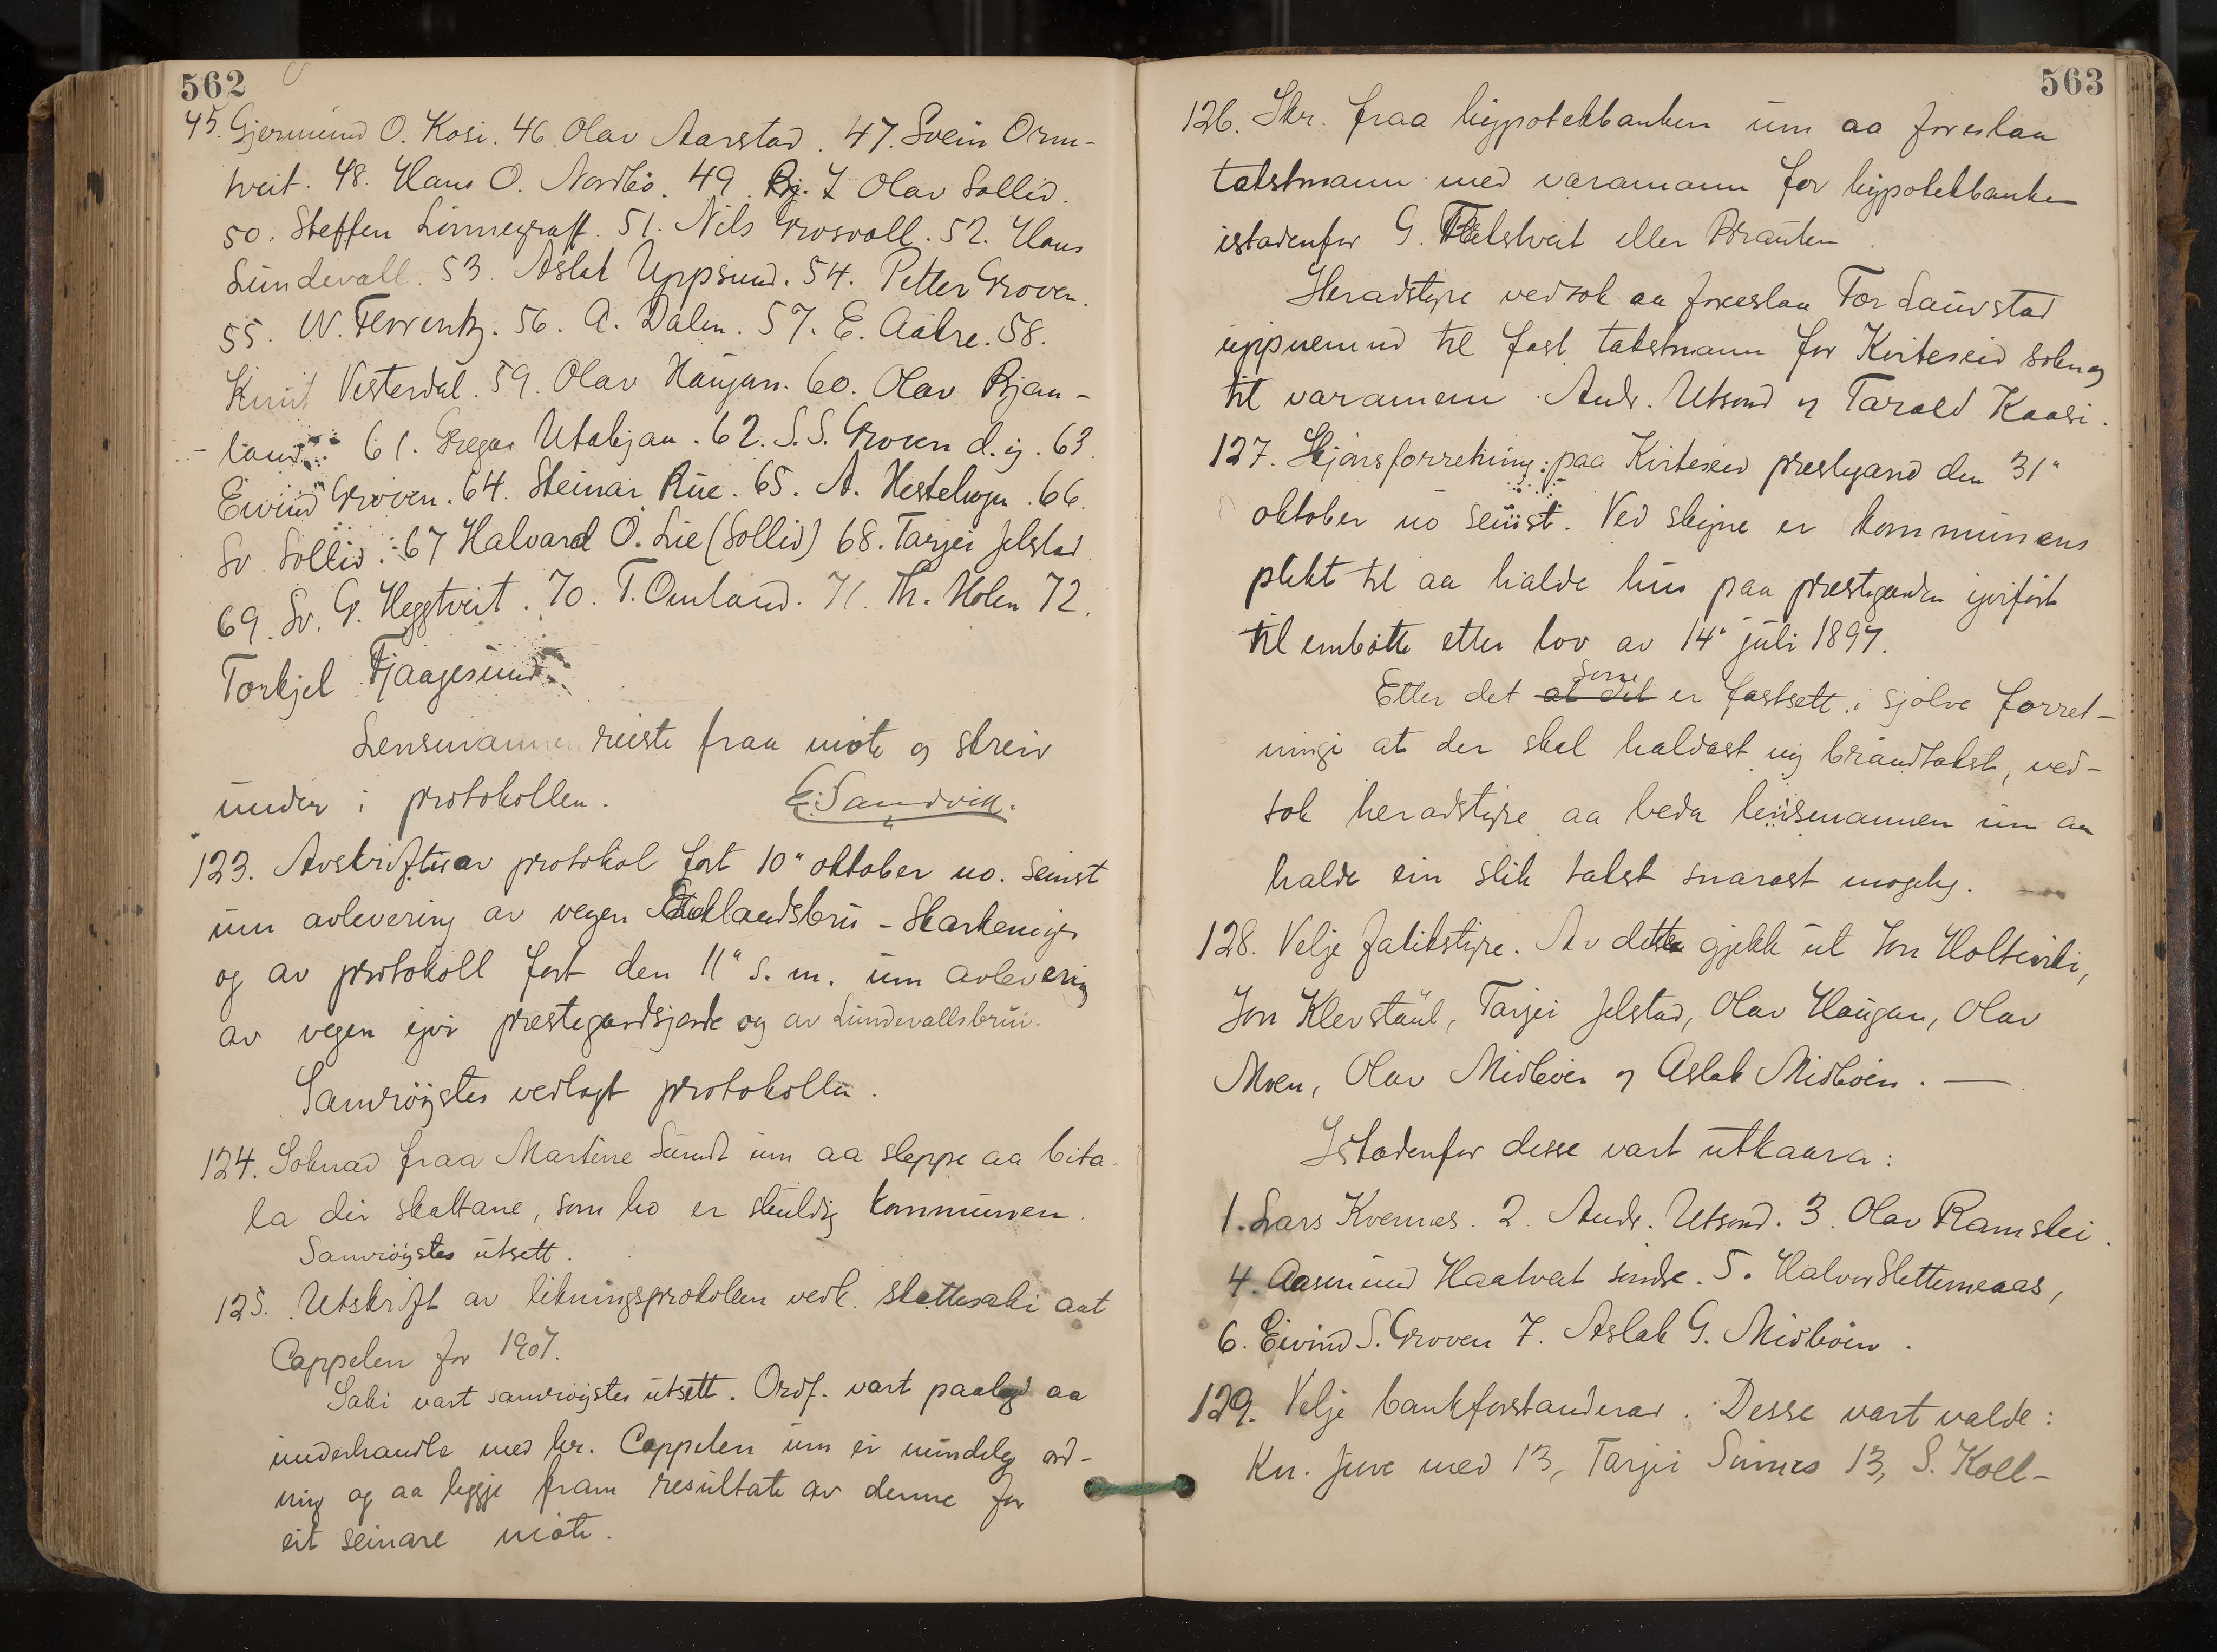 562
45. Gjermund O. Kosi. 46. Olav Aarstad. 47. Svein Orm-
tveit. 48. Hans O. Nordbø. 49. Bj. J. Olav Sollid.
50. Steffen Linnegraff. 51. Nils Grosvoll. 52. Hans
Lundevall. 53. Aslak Uppsund. 54. Petter Groven.
55. W. Florentz. 56. A. Dalen. 57. E. Aakre. 58.
Knut Vesterdal. 59. Olav Haugan. 60. Olav Bjan-
land. 61. Gregar Utabjaa. 62. S. S. Groven d. y. 63.
Eivind Groven. 64. Steinar Rue. 65. A. Hestehagen. 66.
Sv. Sollid. 67 Halvard O. Lie (Sollid) 68. Tarjei Jelstad
69. Sv. G. Heggtveit. 70. T. Omland. 71. Th. Holen 72.
Torkjel Fjaagesund.
Lensmannen reiste fraa møte og skreiv
under i protokollen. E. Sandvik.
123. Avskrifter av protokol ført 10" oktober no. seinst
um avlevering av vegen - Skarkenings
og av protokoll ført den 11" s. m. um avlevering
av vegen yvi prestegardsjorde og av Lundevallsbrui.
Samrøystes vedlagt protokollen.
124. Søknad fraa Martine Sundt um aa sleppe aa bita-
la dei skattane, som ho er skuldig kommunen.
Samrøystes utsett.
125. Utskrift av likningsprotokollen vedk. skattesaki aat
Cappelen for 1907.
Saki vart samrøystes utsett. Ordf. vart paalagd aa
underhandle med hr. Cappelen um ei mindeleg ord-
ning og aa leggje fram resultate av denne for
eit seinare møte.
563
126. Skr. fraa hypotekbanken um aa foreslaa
takstmann med varamann for hypotekbanken
istadenfor G. Telstveit eller Brauten.
Heradstyre vedtok aa foreslaa Tor Laurstad
uppnemnd til fast takstmann for Kviteseid sokn og
til varamenn Andr. Utsond og Tarald Kaasi.
127. Skjønsforretning: paa Kviteseid prestgard den 31"
oktober no seinst. Ved skyne er kommunens
plikt til aa halde hus paa prestgarden yvifört
til embøtte etter lov av 14" juli 1897.
Etter det at det som er fastsett i sjølve forret-
ningi at der skal haldast ny brandtakst, ved-
tok heradstyre aa beda lensmannen um aa
halde ein slik takst snarast mogeleg.
128. Velje fatikstyre. Av dette gjekk ut Jon Holteirki,
Jon Klevstaul, Tarjei Jelstad, Olav Haugan, Olav
Moen, Olav Midbøen og Aslak Midbøen. —
Istadenfor desse vart utkaara:
1. Lars Kvennes. 2. Andr. Utsond. 3. Olav Ramslei.
4. Aasmund Haatveit søndre. 5. Halvor Slettemeaas,
6. Eivind S. Groven 7. Aslak G. Midbøen.
129. Velje bankforstanderar. Desse vart valde:
Kn. Juve med 13, Tarjei Sinnes 13, S. Koll-